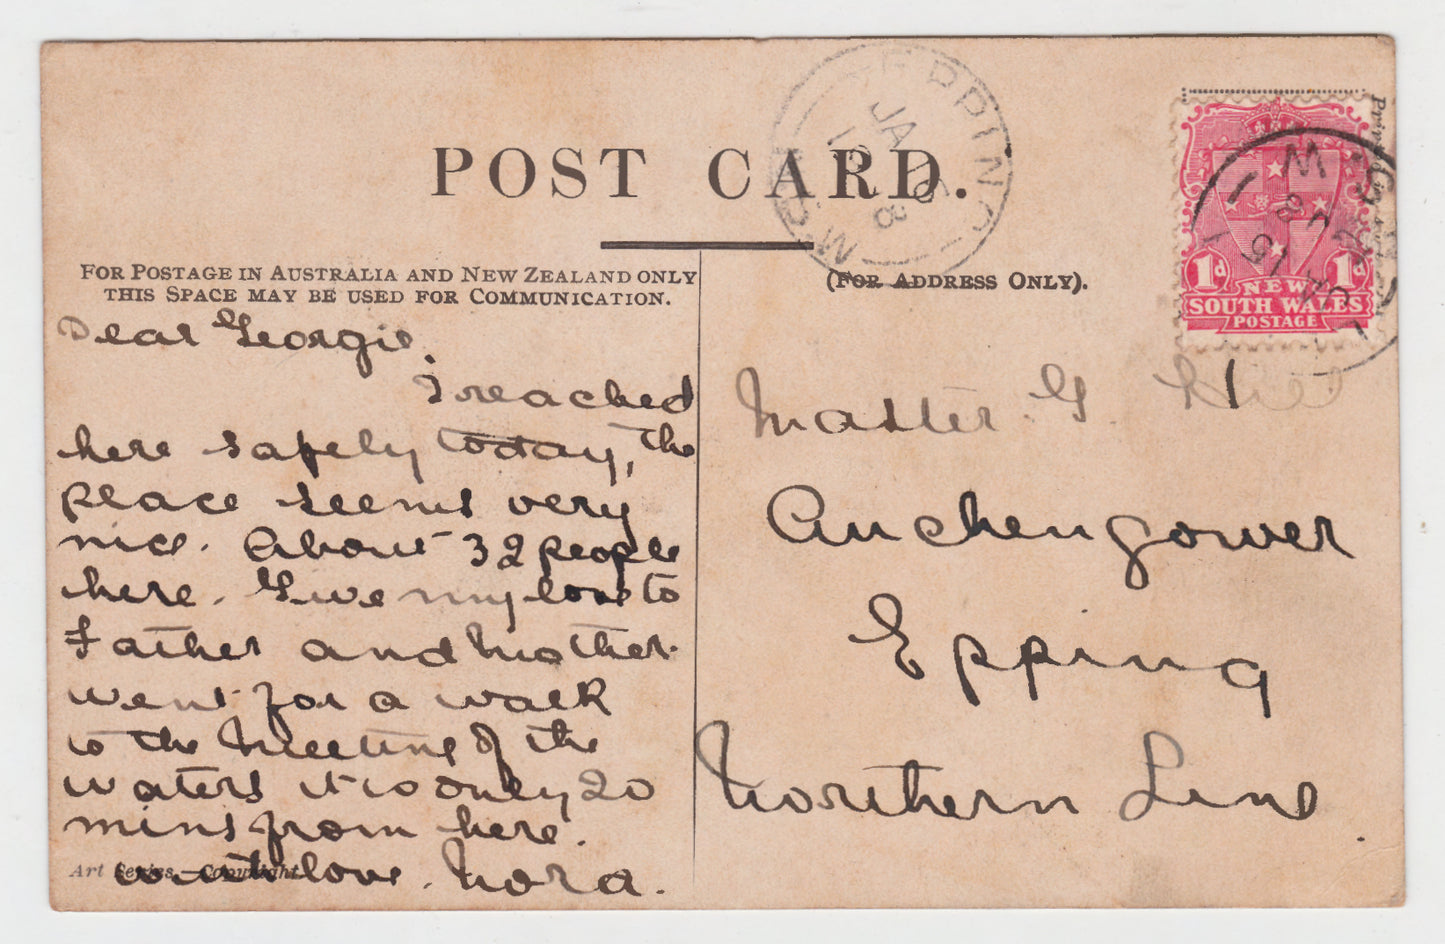 POST CARD.
FOR POSTAGE IN AUSTRALIA AND NEW ZEALAND ONLY
THIS SPACE MAY BE USED FOR COMMUNICATION.
(FOR ADDRESS ONLY).
Dear Georgie.
I reached
here safely today, the
place seems very
nice. About 32 people
here. Give my love to
Father and Mother.
went for a walk
to the Meeting of the
waters it is only 20
mins from here.
with love. Nora.
Art Series.—Copyright
Master. G. Hill
Auchengower
Epping
Northern Line.
EPPING
JA
8
N.S.W
1d 1d
NEW
SOUTH WALES
POSTAGE
JA 15